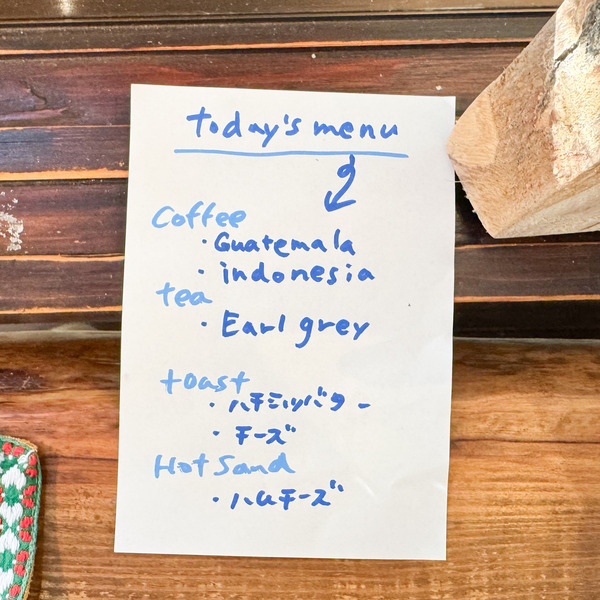 today's menu
Coffee
・Guatemala
・indonesia
tea
・Earl grey
toast
・ハチミツバター
・チーズ
Hot Sand
・ハムチーズ